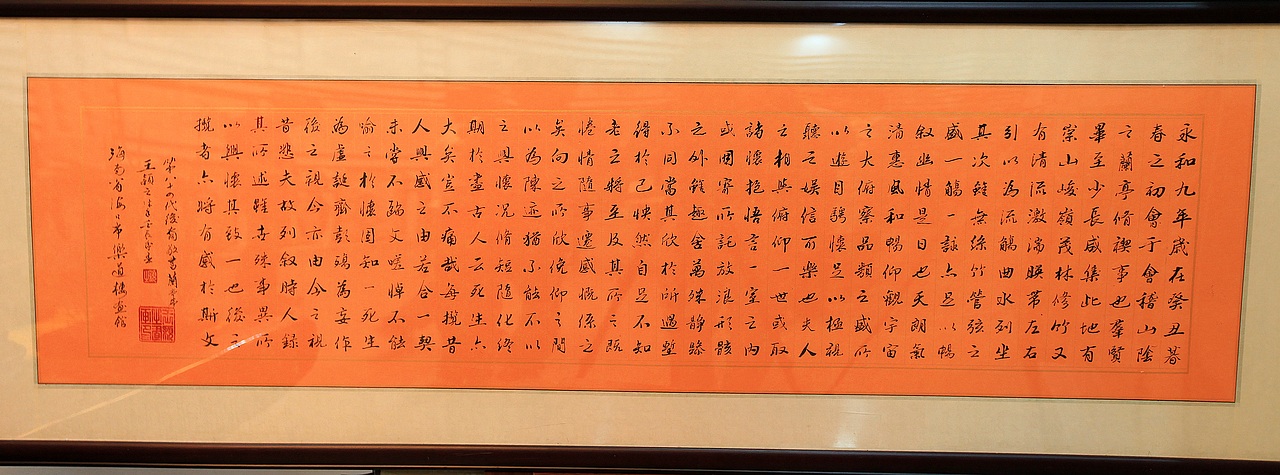 永和九年歲在癸丑暮
春之初會于會稽山陰
之蘭亭脩禊事也羣賢
畢至少長咸集此地有
崇山峻嶺茂林修竹又
有清流激湍暎帶左右
引以為流觴曲水列坐
其次雖無絲竹管弦之
盛一觴一詠亦足以暢
叙幽情是日也天朗氣
清惠風和暢仰觀宇宙
之大俯察品類之盛所
以遊目騁懷足以極視
聽之娛信可樂也夫人
之相與俯仰一世或取
諸懷抱悟言一室之內
或因寄所託放浪形骸
之外雖趣舍萬殊靜躁
不同當其欣於所遇蹔
得於己怏然自足不知
老之將至及其所之既
惓情隨事遷感慨係之
矣向之所欣俛仰之間
以為陳迹猶不能不以
之興懷況脩短隨化終
期於盡古人云死生亦
大矣豈不痛哉每攬昔
人興感之由若合一契
未嘗不臨文嗟悼不能
喻之於懷固知一死生
為虛誕齊彭殤為妄作
後之視今亦由今之視
昔悲夫故列叙時人錄
其所述雖世殊事異所
以興懷其致一也後之
攬者亦將有感於斯文
第八十四代後裔敬書蘭亭序
海南省海口市樂道樓畫館